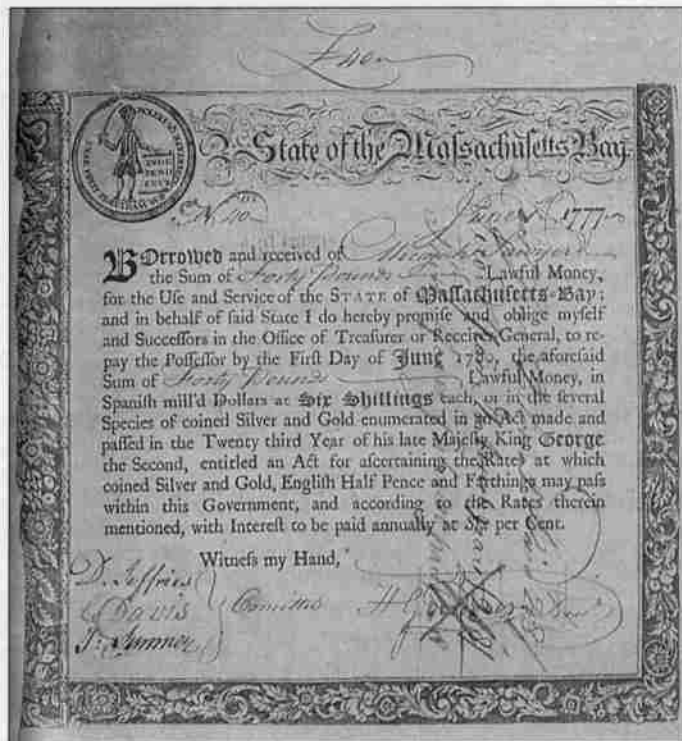 £40
State of the Massachusetts Bay.
INDE
PEND
ENCE
No. 40
June 1777
BOrrowed and received of Sawyer
the Sum of Forty Pounds Lawful Money,
for the Use and Service of the STATE of Massachusetts-Bay;
and in behalf of said State I do hereby promise and oblige myself
and Successors in the Office of Treasurer or Receiver-General, to re-
pay the Possessor by the First Day of June 1780, the aforesaid
Sum of Forty Pounds Lawful Money, in
Spanish mill'd Dollars at Six Shillings each, or in the several
Species of coined Silver and Gold enumerated in an Act made and
passed in the Twenty third Year of his late Majesty King George
the Second, entitled an Act for ascertaining the Rates at which
coined Silver and Gold, English Half Pence and Farthings may pass
within this Government, and according to the Rates therein
mentioned, with Interest to be paid annually at Six per Cent.
Witness my Hand,
D. Jeffries
Davis
Comittee
H Gardner